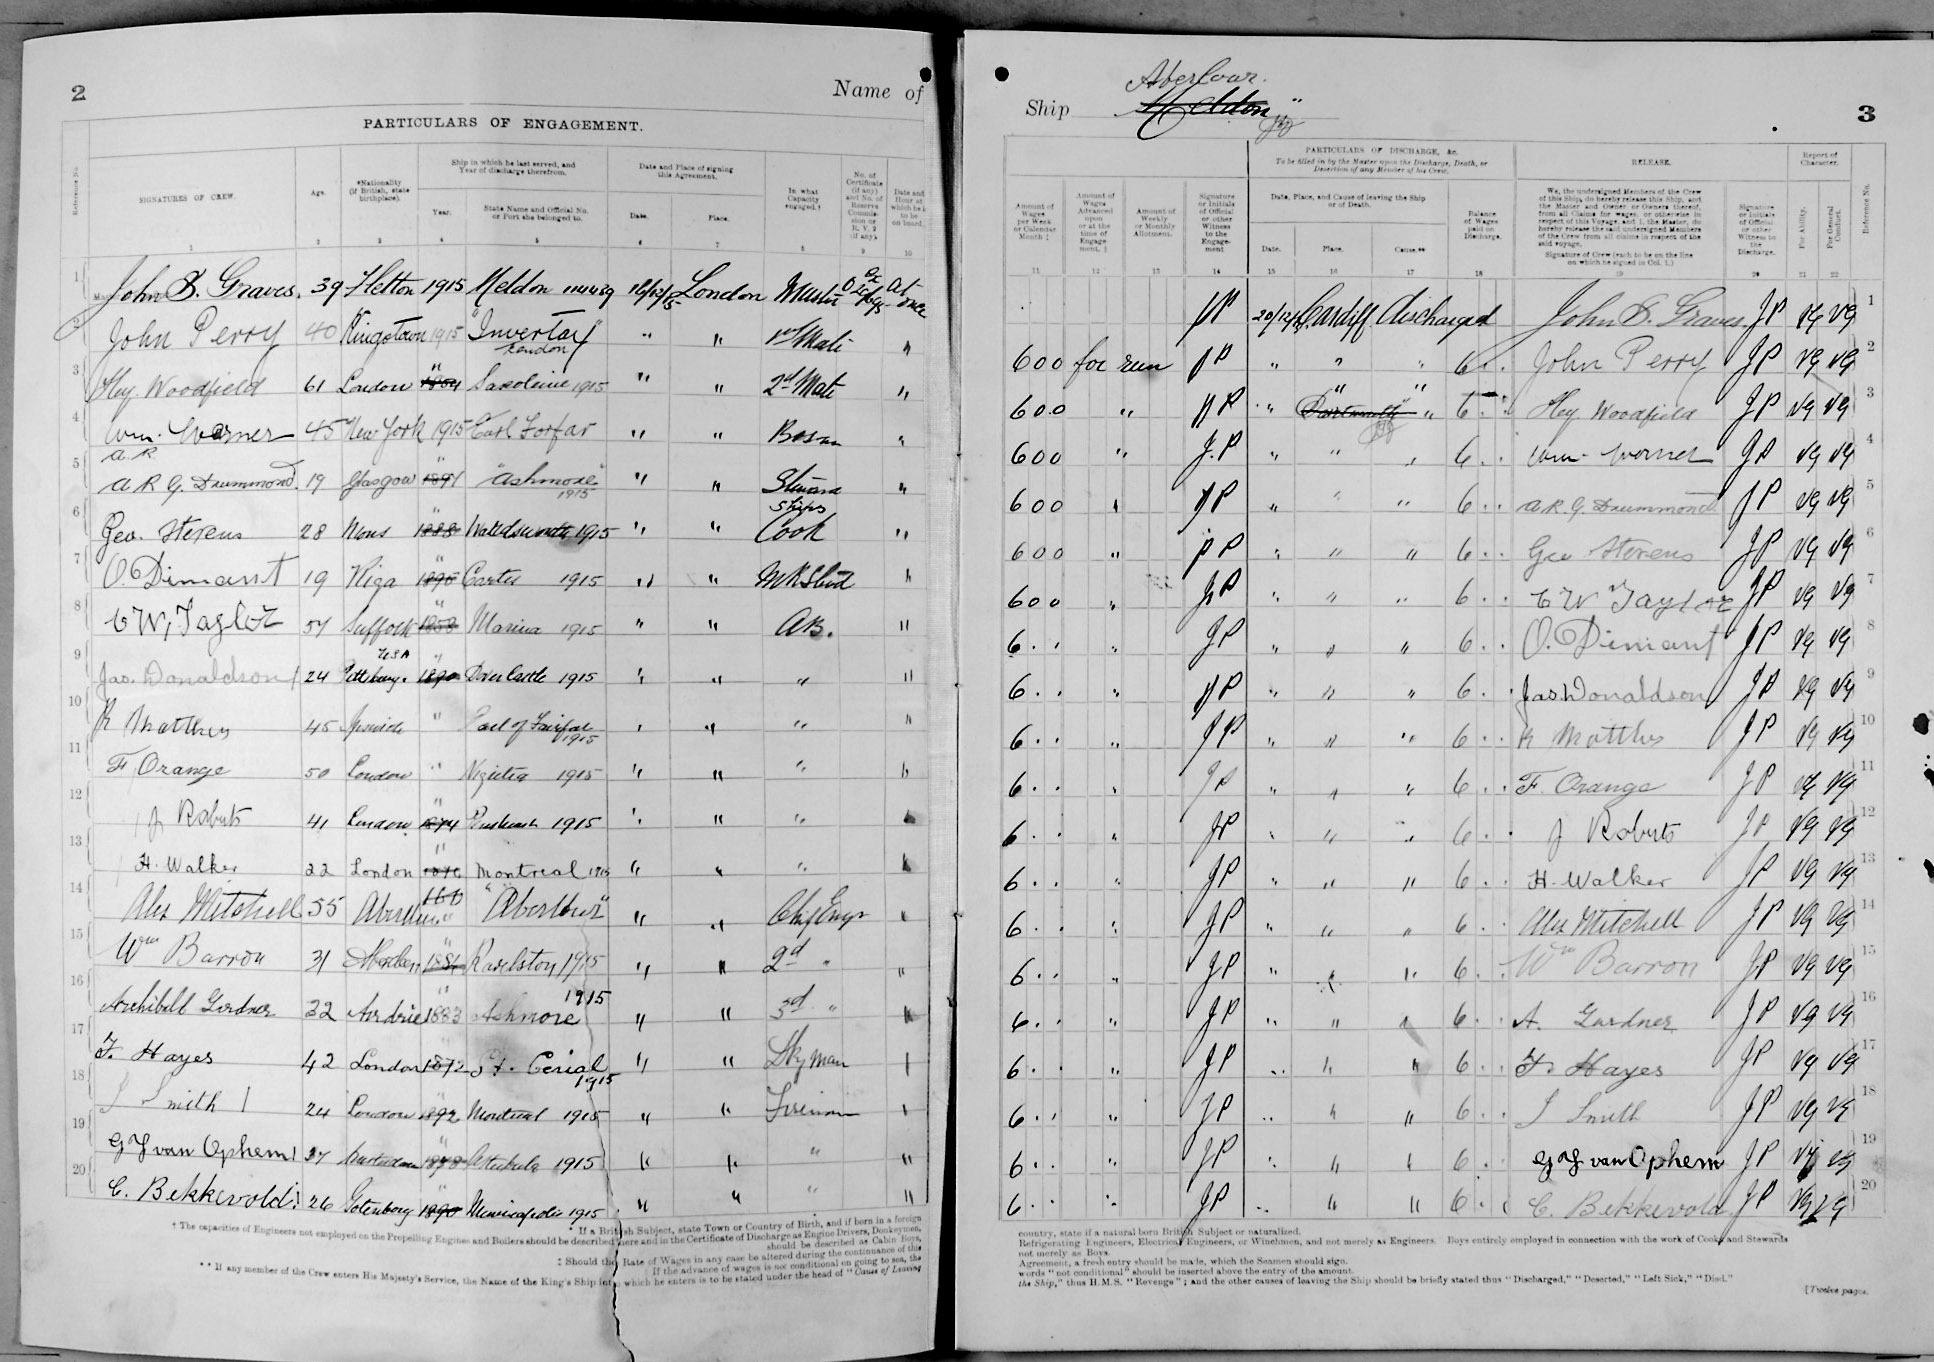 2
Name of
PARTICULARS OF ENGAGEMENT.
Reference No.
SIGNATURES OF CREW.
Age.
*Nationality (if British, state birthplace).
Ship in which he last served, and Year of discharge therefrom.
Year.
State Name and Official No. or Port she belonged to.
Date and Place of signing this Agreement.
Date.
Place.
In what Capacity engaged.†
No. of Certificate (if any) and No. of Reserve Commission or R.V.2 (if any).
Date and Hour at which he is to be on board.
1 2 3 4 5 6 7 8 9 10
1 John S. Graves. 39 Hetton 1915 Meldon London Master At once
2 John Perry 40 Kingstown 1915 "Invertay" London " " 1st Mate "
3 Hy Woodfield 61 London Saxoleine 1915 " " 2nd Mate "
4 Wm. Warner 45 New York 1915 Earl Forfar " " Bosun "
A. R.
5 A R G. Drummond. 19 Glasgow " 1891 "Ashmore" 1915 " " Steward "
6 Geo. Stevens 28 Mons " 1888 1915 " " Ships Cook "
7 O. Dimant 19 Riga " 1895 1915 " " "
8 C W, Taylor 57 Suffolk " 1858 Marina 1915 " " AB. "
9 Jas. Donaldson 24 USA " 1890 Dover Castle 1915 " " " "
10 R Matthews 45 Ipswich " Earl of Fairfax 1915 " " " "
11 F Orange 50 London " 1915 " " " "
12 J Roberts 41 London " 1874 1915 " " " "
13 H. Walker 22 London " Montreal 1915 " " " "
14 Alex Mitchell 55 " "Aberlour" " " Chf Engr "
15 Wm Barron 31 Aberdeen " 1884 Ravelston 1915 " " 2nd " "
16 Archibald Gardner 32 Airdrie " 1883 Ashmore 1915 " " 3rd " "
17 F. Hayes 42 London 1872 St. 1915 " " Dkyman "
18 J Smith 24 London 1892 Montreal 1915 " " Fireman "
19 G Y van Ophem 37 Amsterdam " 1878 1915 " " " "
20 C. Bekkevold 26 Gotenborg " 1890 Minneapolis 1915 " " " "
† The capacities of Engineers not employed on the Propelling Engines and Boilers should be described here and in the Certificate of Discharge as Engine Drivers, Donkeymen,
* If a British Subject, state Town or Country of Birth, and if born in a foreign
should be described as Cabin Boys,
‡ Should the Rate of Wages in any case be altered during the continuance of this
If the advance of wages is not conditional on going to sea, the
** If any member of the Crew enters His Majesty's Service, the Name of the King's Ship into which he enters is to be stated under the head of "Cause of Leaving
Aberlour.
Ship Meldon "
3
PARTICULARS OF DISCHARGE, &c.
To be filled in by the Master upon the Discharge, Death, or Desertion of any Member of his Crew.
RELEASE.
Report of Character.
Amount of Wages per Week or Calendar Month ‡
Amount of Wages Advanced upon or at the time of Engagement. ‡
Amount of Weekly or Monthly Allotment.
Signature or Initials of Official or other Witness to the Engagement
Date, Place, and Cause of leaving the Ship or of Death.
Date.
Place.
Cause.**
Balance of Wages paid on Discharge.
We, the undersigned Members of the Crew of this Ship, do hereby release this Ship, and the Master and Owner or Owners thereof, from all Claims for wages or otherwise in respect of this Voyage, and I, the Master, do hereby release the said undersigned Members of the Crew from all claims in respect of the said voyage.
Signature of Crew (each to be on the line on which he signed in Col. 1.)
Signature or Initials of Official or other Witness to the Discharge.
For Ability.
For General Conduct.
Reference No.
11 12 13 14 15 16 17 18 19 20 21 22
JP Cardiff Discharged John S. Graves. JP VG VG 1
600 for run JP " " " 6 . . John Perry JP VG VG 2
600 " JP " " Dartmouth " " 6 . . Hy Woodfield JP VG VG 3
600 " J.P " " " 6 . . Wm. Warner JP VG VG 4
600 " JP " " " 6 . . A R. G. Drummond JP VG VG 5
600 " JP " " " 6 . . Geo Stevens JP VG VG 6
600 " JP " " " 6 . . C W Taylor JP VG VG 7
6 . . " JP " " " 6 . . O. Dimant JP VG VG 8
6 . . " JP " " " 6 . . Jas Donaldson JP VG VG 9
6 . . " JP " " " 6 . . R Matthews JP VG VG 10
6 . . " JP " " " 6 . . F. Orange JP VG VG 11
6 . . " JP " " " 6 . . J Roberts JP VG VG 12
6 . . " JP " " " 6 . . H. Walker JP VG VG 13
6 . . " JP " " " 6 . . Alex Mitchell JP VG VG 14
6 . . " JP " " " 6 . . Wm Barron JP VG VG 15
6 . . " JP " " " 6 . . A. Gardner JP VG VG 16
6 . . " JP " " " 6 . . F. Hayes JP VG VG 17
6 . . " JP " " " 6 . . J Smith JP VG VG 18
6 . . " JP " " " 6 . . G Y van Ophem JP VG VG 19
6 . . " JP " " " 6 . . C. Bekkevold JP VG VG 20
country, state if a natural born British Subject or naturalized.
Refrigerating Engineers, Electrical Engineers, or Winchmen, and not merely as Engineers. Boys entirely employed in connection with the work of Cooks and Stewards
not merely as Boys.
Agreement, a fresh entry should be made, which the Seamen should sign.
words "not conditional" should be inserted above the entry of the amount.
the Ship," thus H.M.S. "Revenge"; and the other causes of leaving the Ship should be briefly stated thus "Discharged," "Deserted," "Left Sick," "Died."
[Twelve pages.